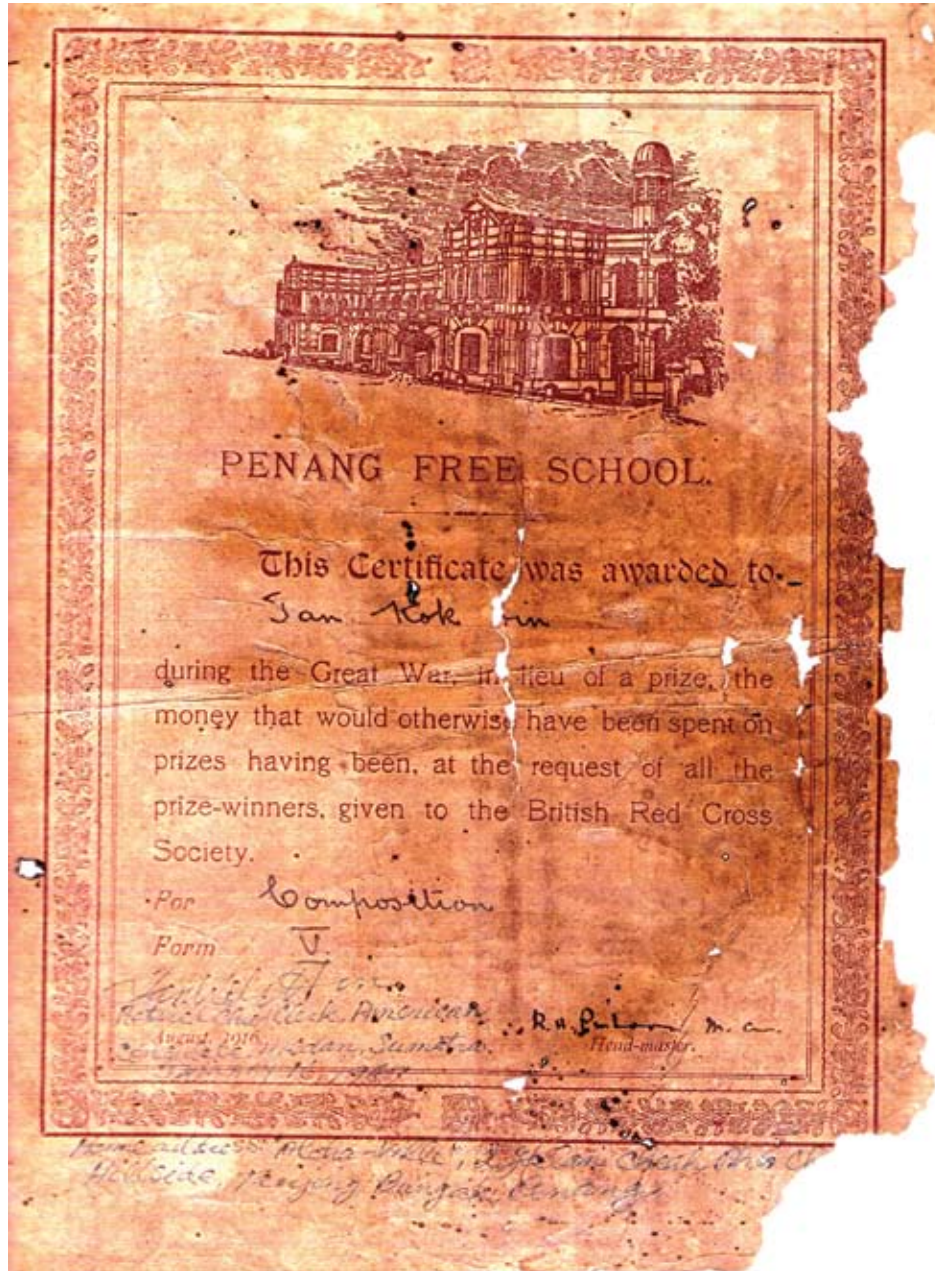 PENANG FREE SCHOOL.
This Certificate was awarded to
Tan Kok
during the Great War, in lieu of a prize, the
money that would otherwise have been spent on
prizes having been, at the request of all the
prize-winners, given to the British Red Cross
Society.
For Composition
Form V
American
August, 1916 Sumatra
R.H. M.A.
Head-master.
Home address
Hillside, Tanjong Bungah, Penang